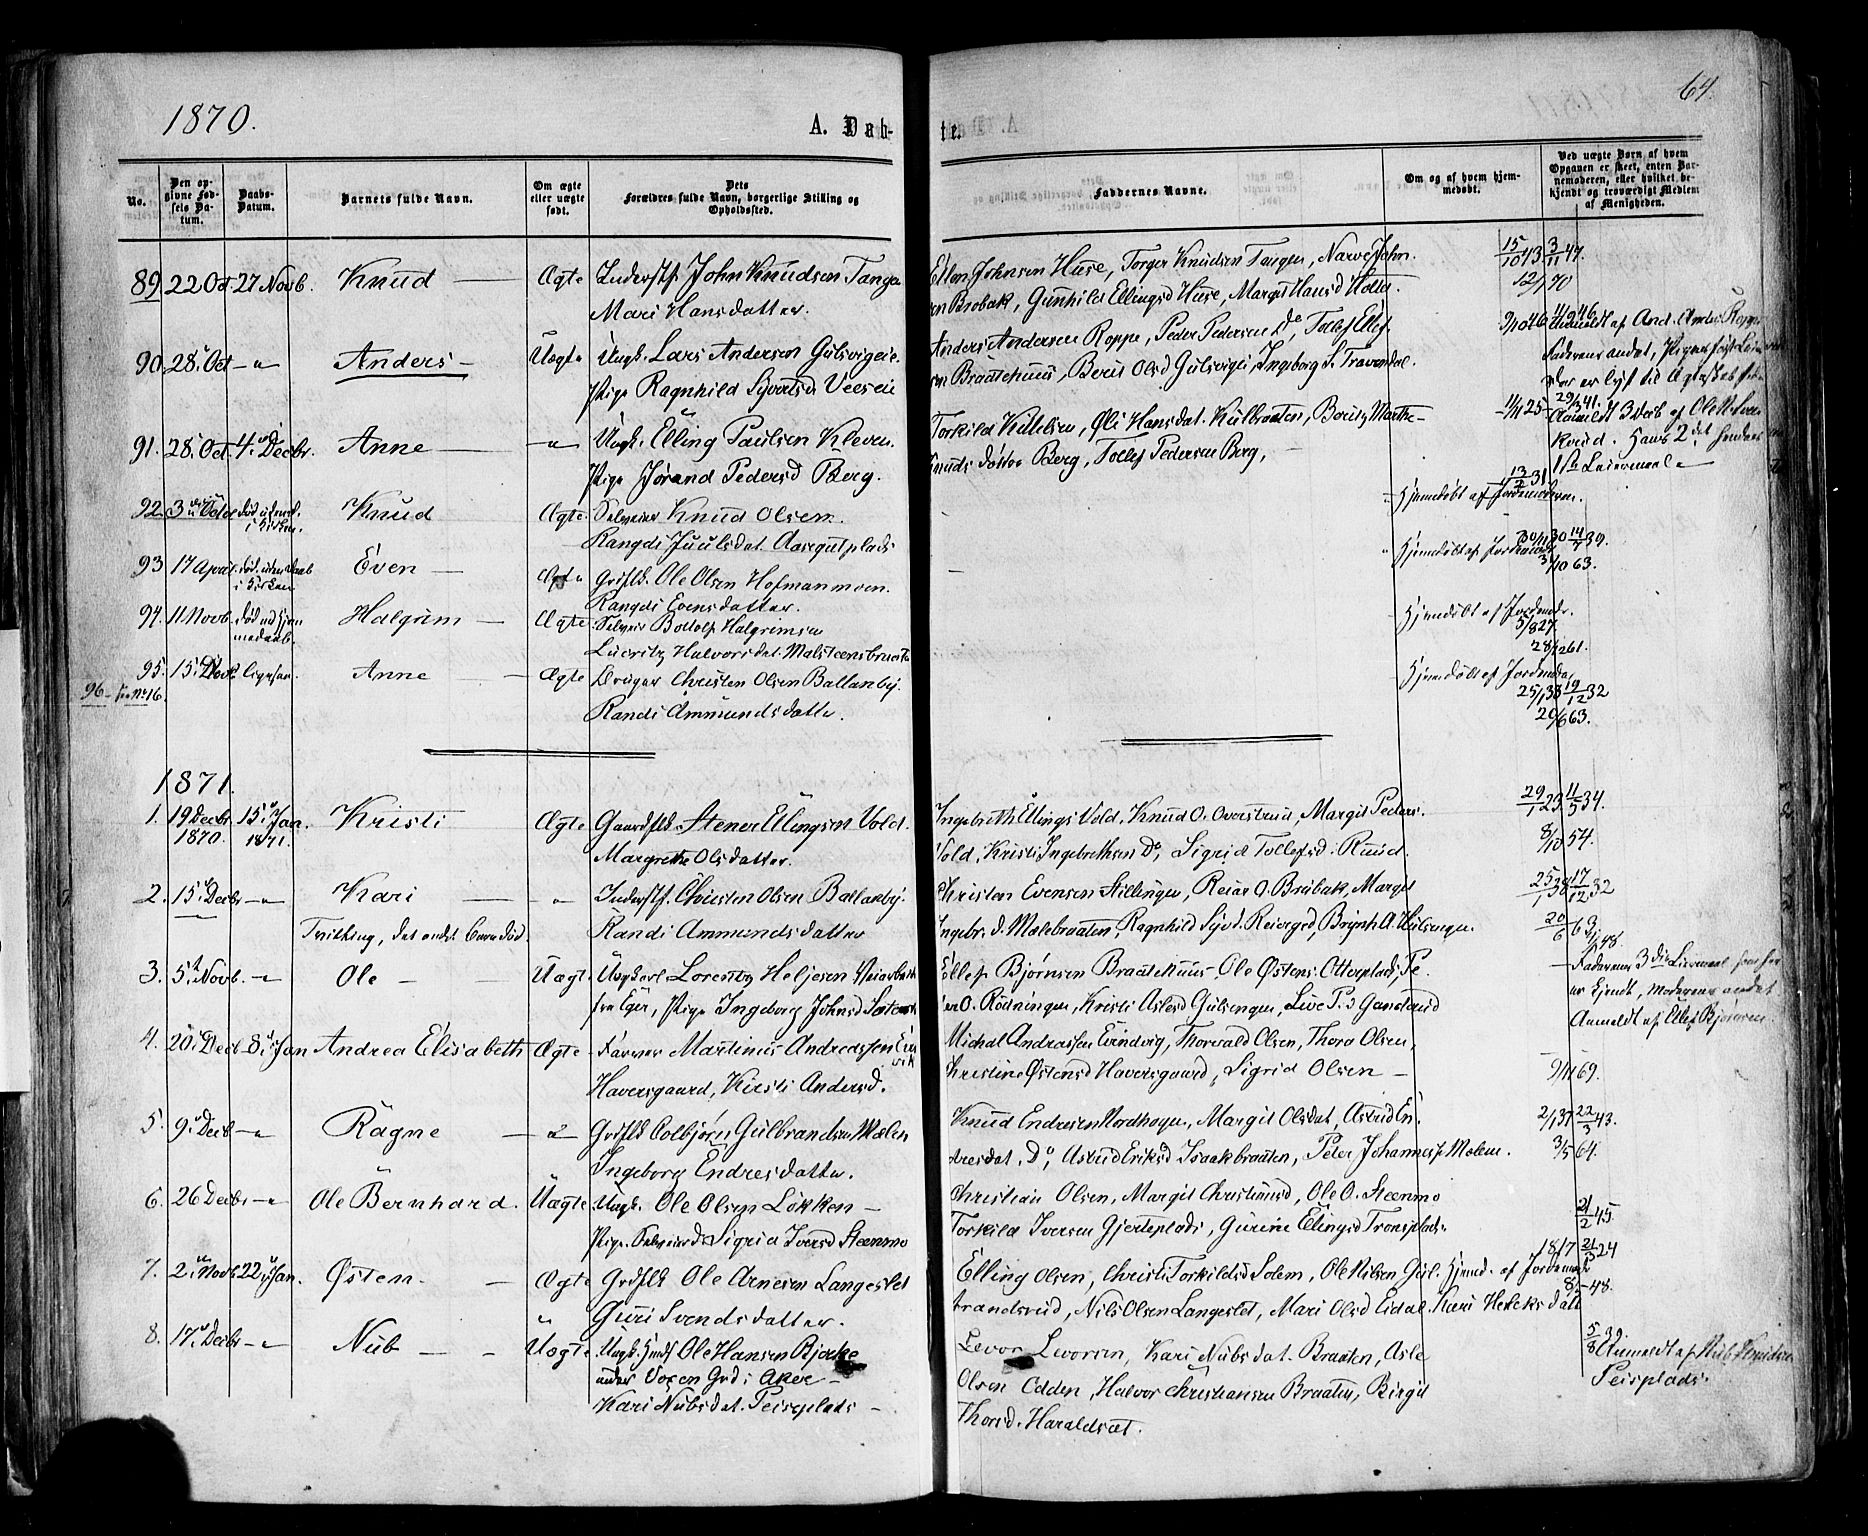 1870.
A. Døb-
te.
64.
No.
Den op-
givne Fød-
sels Da-
tum.
Daabs-
Datum.
Barnets fulde Navn.
Om ægte
eller uægte
født.
Dets
Forældres fulde Navn, borgerlige Stilling og
Opholdssted.
Faddernes Navne.
Om og af hvem hjem-
medøbt.
Ved uægte Børn af hvem
Opgaven er skeet, enten Bar-
nemoderen, eller hvilket be-
kjendt og troværdigt Medlem
af Menigheden.
89 22 Oct 27 Novb. Knud — Ægte Inderstf. John Knudsen Tangen
Mari Hansdatter.
Ellen Johnsen Huse, Torger Knudsen Tangen, Narve John-
sen Brobak, Gunhild Ellingsd Huse, Margit Hansd
15/10 43 3/11 47.
12/1 70
90. 28. Oct - " Anders - Uægte Ungk. Lars Andersen Gulsvigeie.
Pige Ragnhild Syversd Veeseie
Anders Andersen Roppe, Peder Pedersen Do, Tollef Ellef-
sen Braatehuus, Berit Olsd Gulsvigei, Ingeborg S. Travendal.
9/10 46 4/9 46
Anmeldt af And. Anders. Roppe
Faderens andet, Pigens første Leiermaal
der er lyst til Ægteskab
91. 28. Oct. 4. Decbr. Anne — " Ungk. Elling Paulsen Kleven.
Pige Jørand Pedersd Berg.
Torkild Kittelsen, Øli Hansdat. Kulbraaten, Marthe
Knudsdatter Berg, Tollef Pedersen Berg,
11/11 25 29/3 41.
Anmeldt 3 Decb af Ole N. Sven
kerud. Hans 2det hendes
1ste Leiermaal
92. Død udenf. i Kirken. Knud Ægte. Selveier Knud Olsen.
Rangdi Juulsdat. Aasegutplads
Hjemdøbt af Jordemoderen.
13/2 31
93 17 Apr. død uden Daab
i Kirken Even — Ægte Grdflk. Ole Olsen Hofmanmoen.
Rangdi Evensdatter.
Hjemdøbt af Jordemor
30/11 30 14/7 39.
3/10 63.
94. 11 Novb. død ved Hjem
medaab. Halgrim — Ægte. Selveier Bottolf Halgrimsen
Lucritz Halvorsdat. Malsteensbraaten
Hjemdøbt af Jordemdr.
5/8 27
28/12 61.
95. 15. ligesaa Anne — Ægte Bruger Christen Olsen Ballanby.
Randi Ammundsdatter.
Hjemdøbt af Jordemdr.
25/1 38 19/12 32
20/6 63.
96 - see No. 16.
1871.
1. 19 Decbr 15. Jan. Kristi Ægte Gaardflk. Stener Ellingsen Vold.
1870. 1871. Margrethe Olsdatter.
Ingebreth Ellings Vold, Knud O. Overstrud, Margit Peders.
Vold, Kristi Ingebrethsen Do, Sigrid Tollefsd. Ruud.
29/1 29 11/5 34.
8/10 54.
2. 15. Decbr - " Kari — " Inderstf. Christen Olsen Ballanby.
Tvilling, det andet Barn død. Randi Ammundsdatter
Christen Evensen Stillingen, Reiar O. Brubak, Margit
Ingebr. d. Mælebraaten, Ragnhild Syvt. Reiersd, Brynh. A. Hulsengen.
25/1 38 17/12 32
20/6 63.
3. 5te Novb. - " Ole — Uægt. Ungkarl Lorentz Heljesen Veiarbeid
fra Eger, Pige Ingeborg Johnsd
Tollef Bjørnsen Braatehuus - Ole Østens. Otterplads, Pe-
der O. Rudningen, Kristi Aslesd Gulsengen, Live P.d Gandrud
4/1 48.
Faderens 3die Leiermaal som her
er kjendt, Moderens andet
Anmeldt af Ellef Bjørnsen.
4. 20. Decb 8. Jan Andrea Elisabeth Ægte Farver Martinus Andreassen Evind
vik
Haversgaard, Kirsti Andersd.
Michal Andreassen Evindvig, Thorvald Olsen, Thora Olsen,
Christine Østensd Haversgaard, Sigrid Olsen —
9/11 69.
5. 9. Decb - " Ragne — " Grdflk Colbjørn Gulbrandsen Mælen
Ingeborg Endresdatter.
Knud Endresen Nordhagen, Margit Olsdat, Astrid En-
dresdat, Do, Astrid Eriksd Isaakbraaten, Peter Johannes. Mælem.
2/1 37 22/3 43.
3/5 64.
6. 26 Decbr - " Ole Bernhard. Uægte Ungk. Ole Olsen Løkken —
Pige Sigrid Iversd Steenmo
Christian Olsen, Margit Christiansd, Ole O. Steenmo
Torkild Iversen Gjerteplads, Gurine Ellingsd Tronsplads.
21/2 45.
7. 2. Novb 22. Jan. Østen. — Ægte Grdflk Ole Arnesen Langeslet
" Guri Svendsdatter.
Elling Olsen, Christi Torkildsd Solem, Ole Nilsen Gul-
brandsrud, Nils Olsen Langeslet, Mari Olsd Eidal, Kari
Hjemd. af Jordemdr
18/1 17 21/3 24
8/1 48.
8. 17. Decbr - " Nub — - Uægte Ungk. Ole Hansen Bjerke
under Voxen Grd i Aker —
Kari Nubsdat. Peisplads —
Levor Levorsen, Kari Nubsdat. Braaten, Asle
Olsen Edden, Halvor Christiansen Braaten, Birgit
Thorsd. Haraldset.
5/8 39.
Anmeldt af Nub Knudsen
Peisplads.